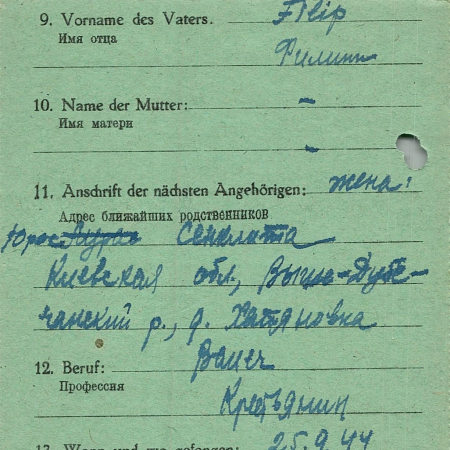 9. Vorname des Vaters. Filip
Имя отца Филипп
10. Name der Mutter: –
Имя матери –
11. Anschrift der nächsten Angehörigen: жена:
Адрес ближайших родственников
Сенклита
Киевская обл., Выше-Дубе-
чанский р., д. Хатяновка
12. Beruf: Bauer
Профессия Крестьянин
25.9.44